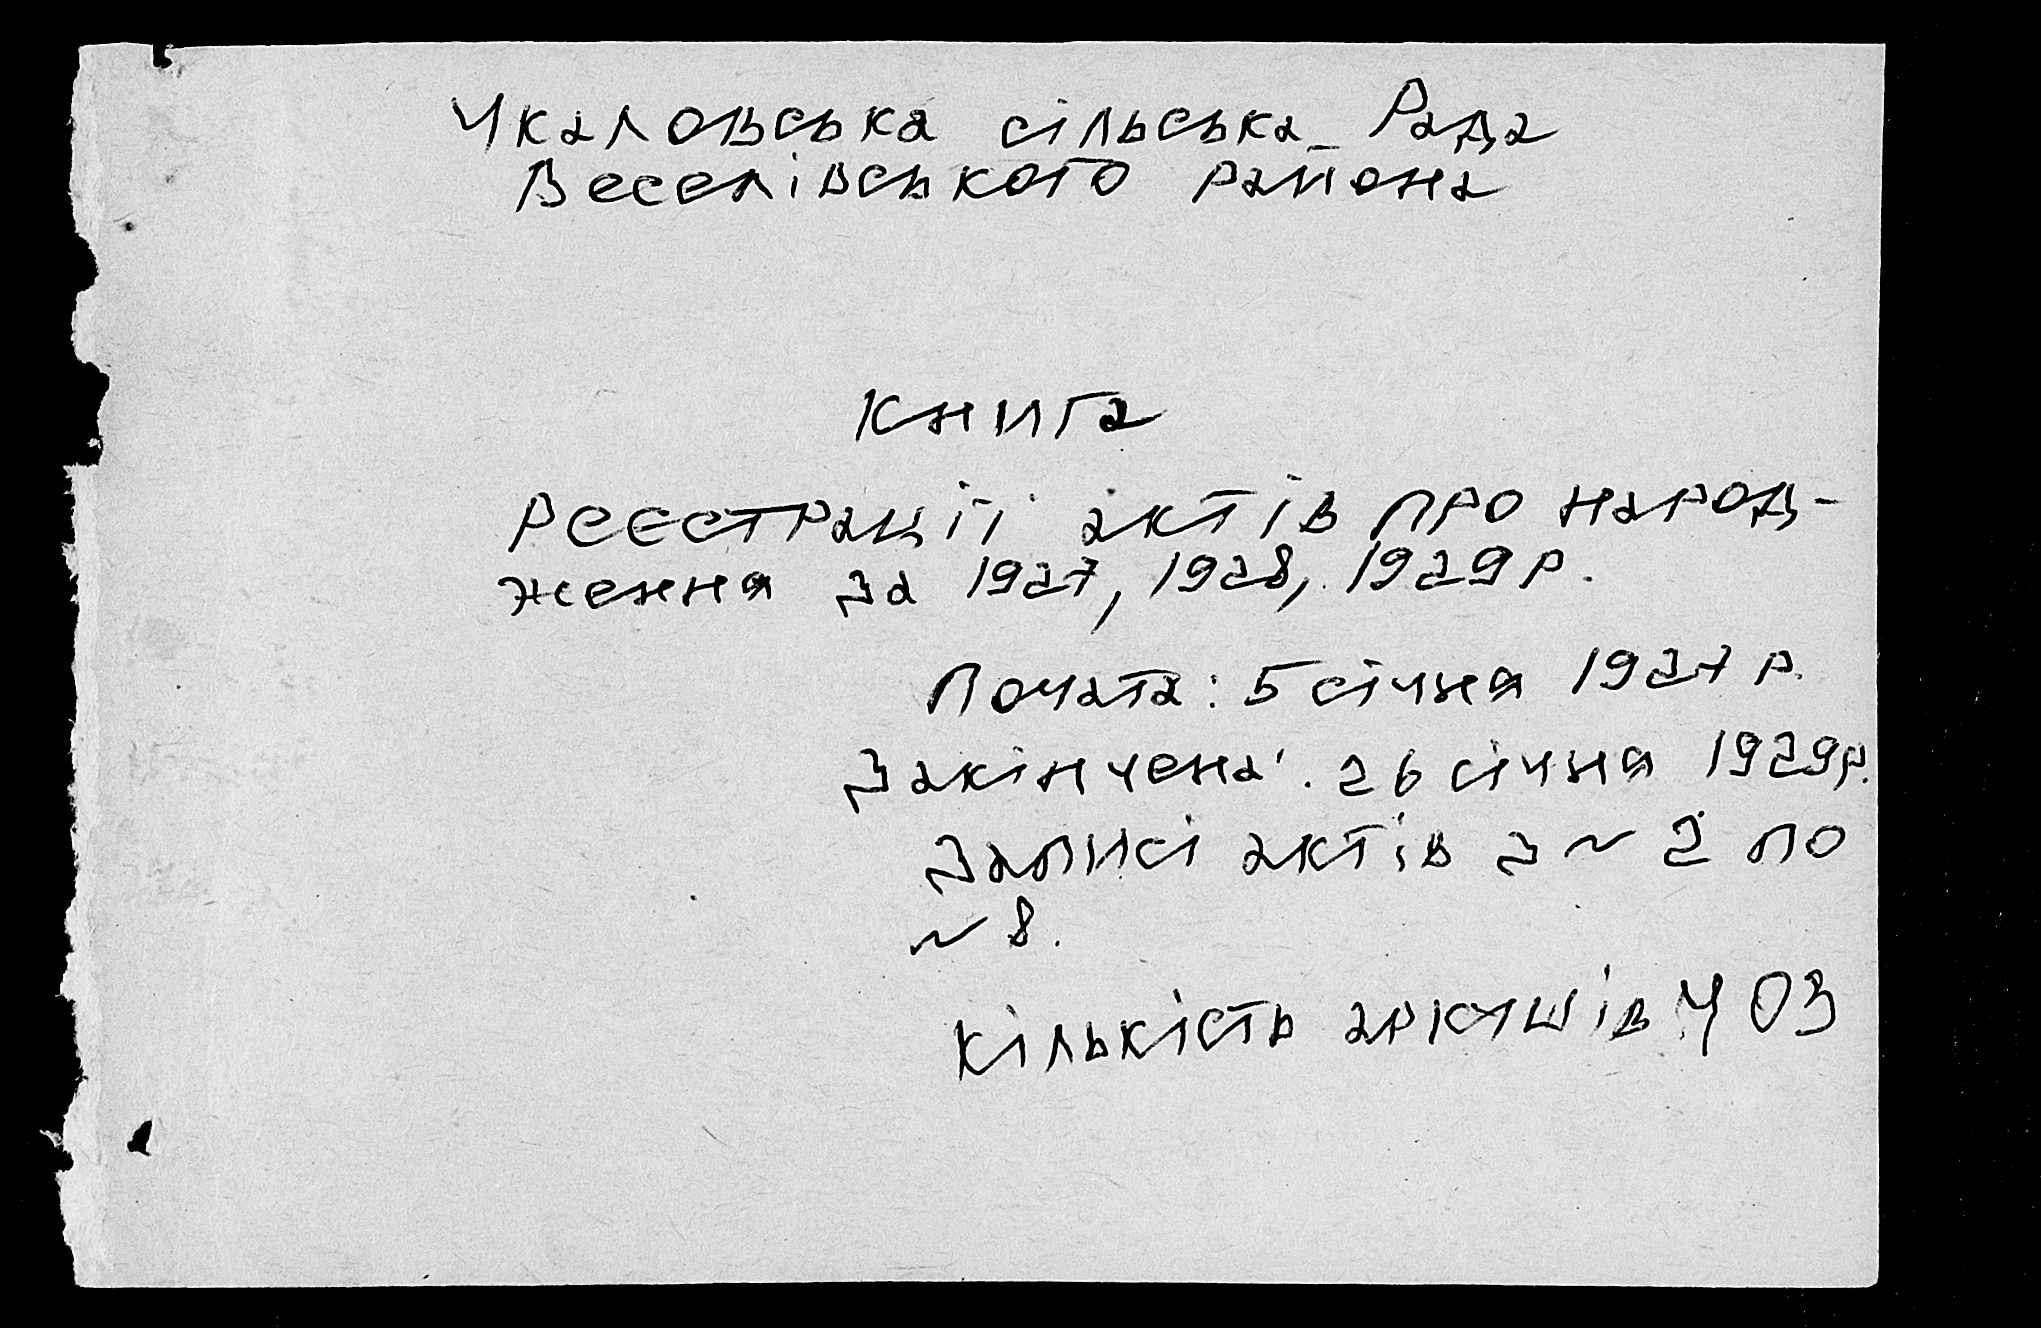 Чкаловська сільська Рада
Веселівського района
книга
реєстрації актів про народ-
ження за 1927, 1928, 1929 р.
Почата: 5 січня 1927 р.
Закінчена: 26 січня 1929 р.
Записі актів з № 2 по
№ 8.
кількість аркушів 403